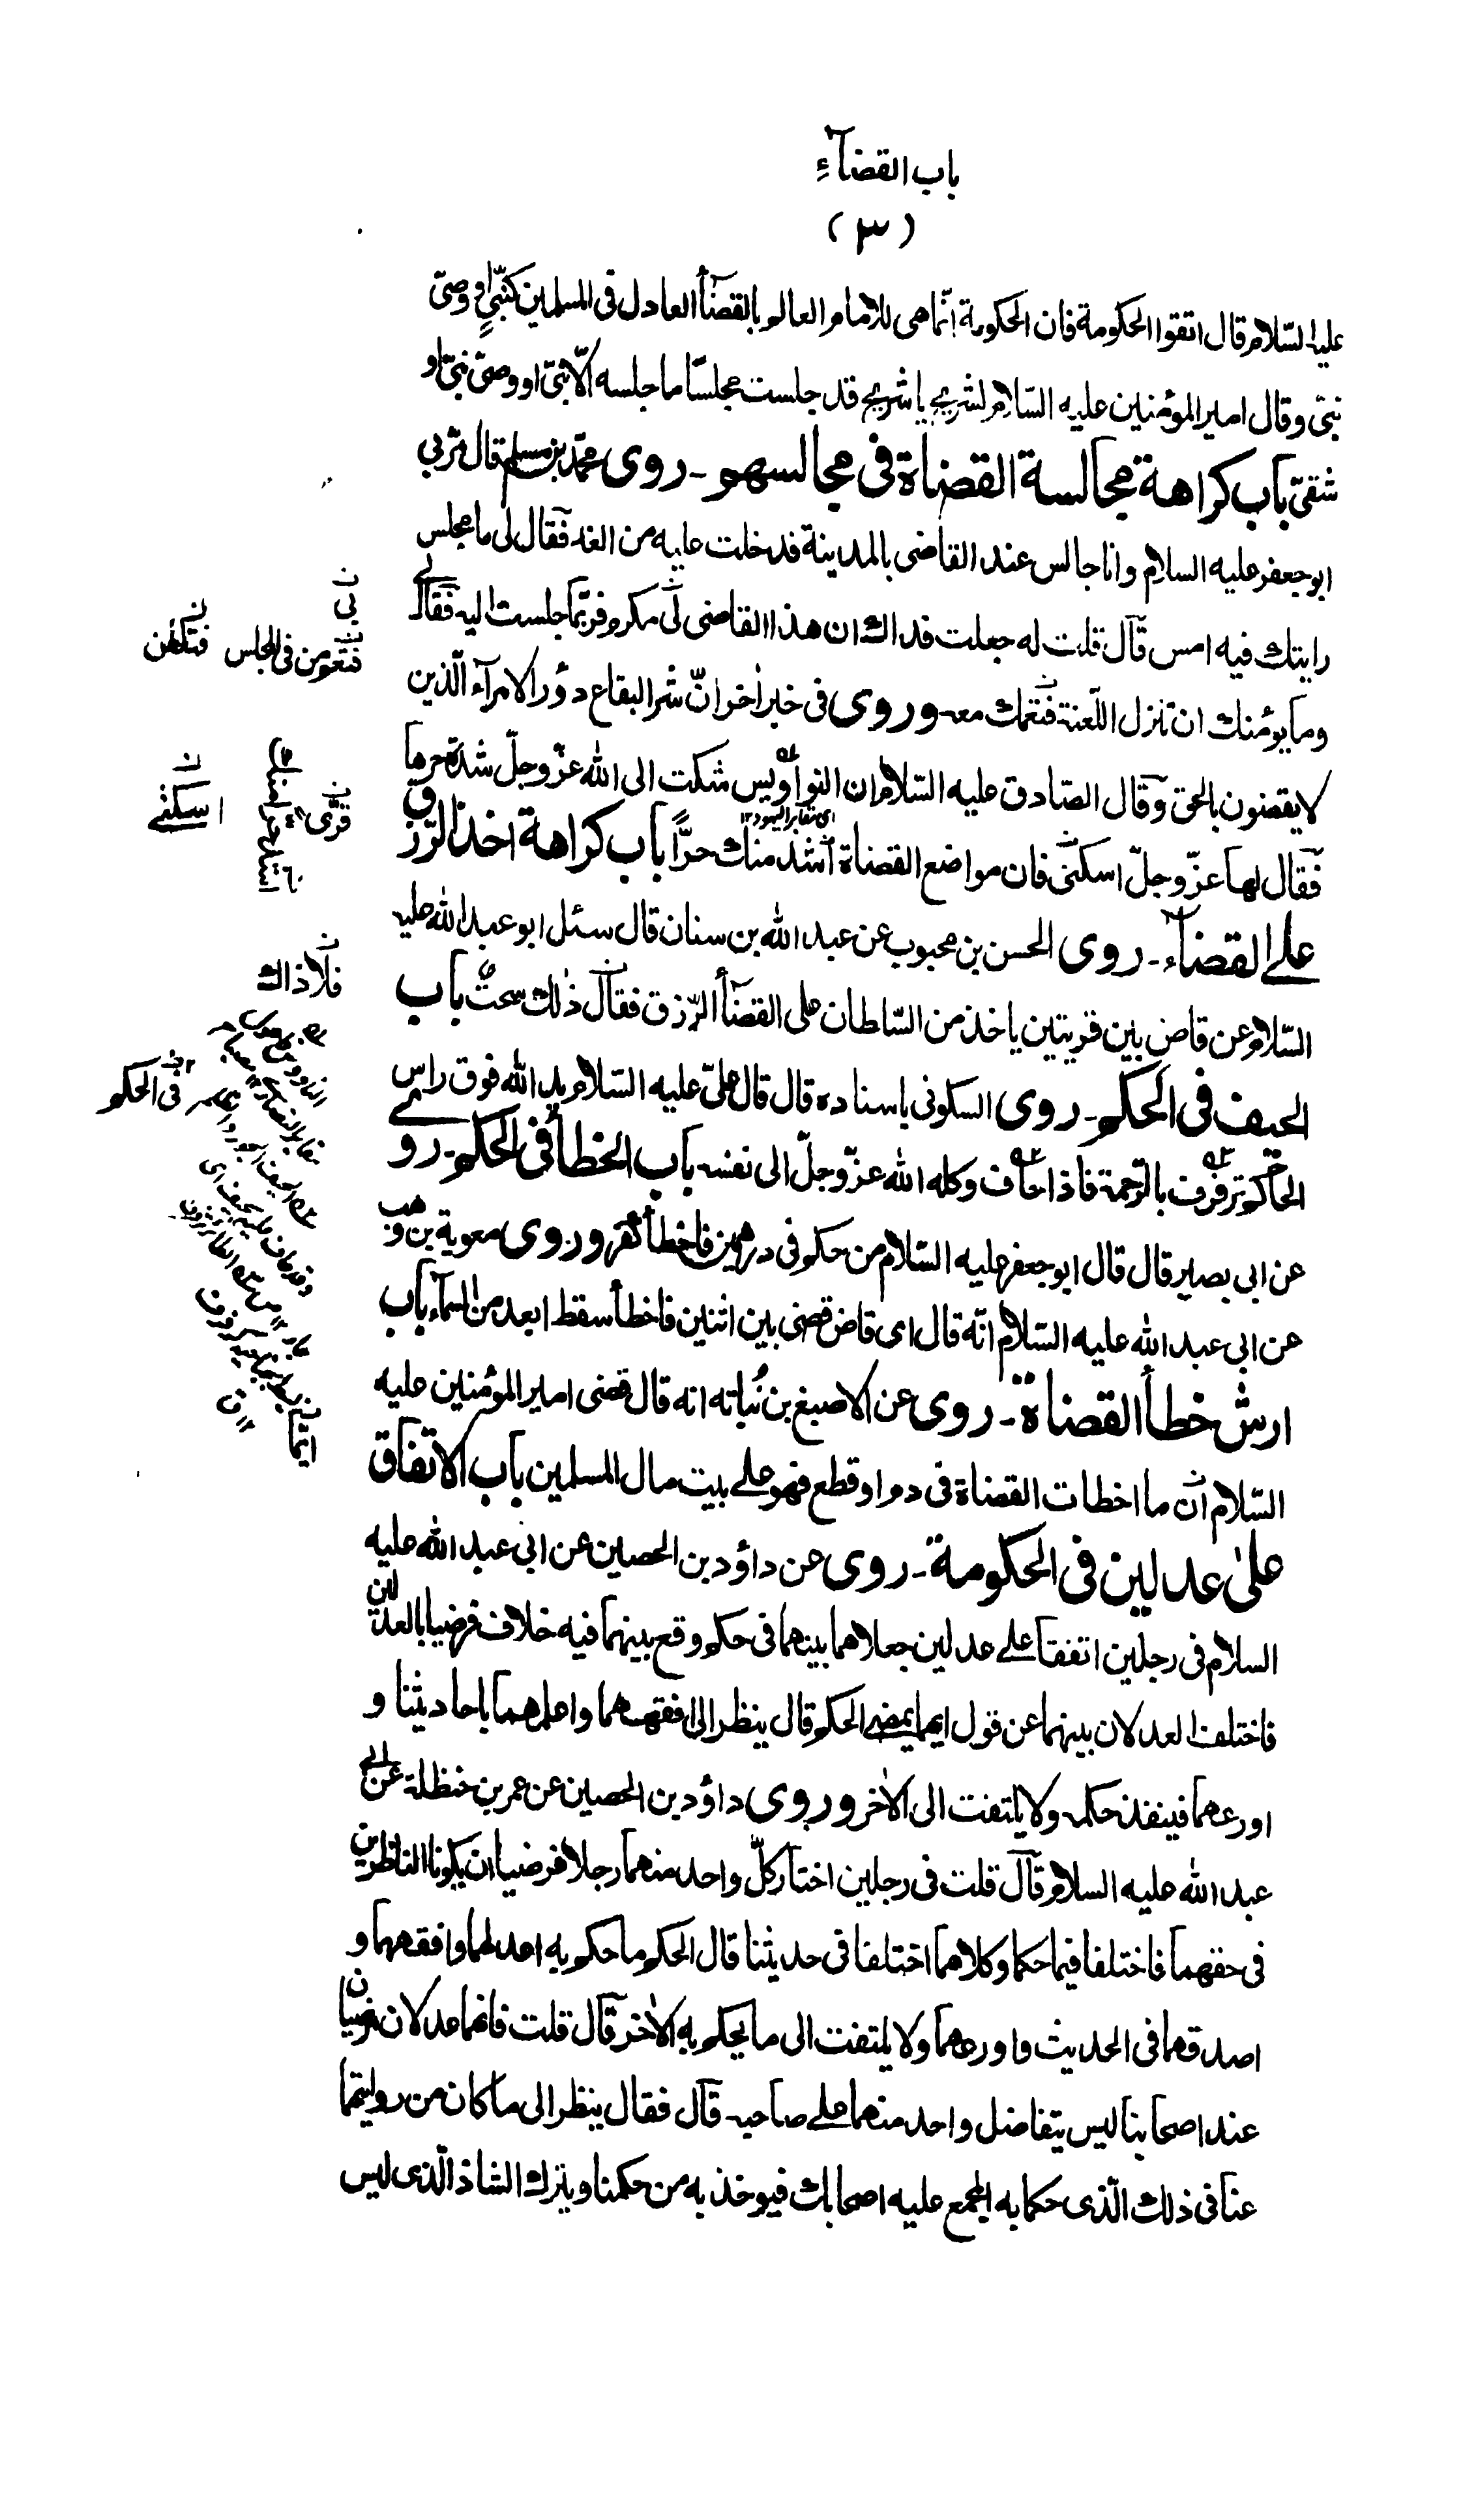 باب القضآءِ
(٣)
عليه السّلام قال اتقوا الحكومة فان الحكومة انّما هى للامام العالم بالقضآأ العادل فى المسلمين كنبىٍّ او وصىّ
نبىّ وقال امير المؤمنين عليه السّلام لشريح يا شريح قد جلست مجلسًا ما جلسه الّا نبىّ او وصىّ نبىّ او
شقىّ باب كراهة مجالسة القضاة فى مجالسهم ـ روى محمّد بن مسلم قال مرّ بى
ابو جعفر عليه السلام وانا جالس عند القاضى بالمدينة فدخلت عليه من الغد فقال لى ما مجلس
رايتك فيه امس قال قلت له جعلت فداك ان هذا القاضى لى مكرم فربّما جلست اليه فقال لى
وما يؤمنك ان تنزل اللّعنة فتعمّك معه وروى فى خبر اٰخر انّ شر البقاع دؤر الامرآء الّذين
لا يقضون بالحق وقال الصّادق عليه السّلام ان النواويس شكت الى الله عزّ وجلّ شدّة حرها
اى مقابر اليهود ١٢
فقال لها عزّ وجلّ اسكنى فان مواضع القضاة اشدّ منك حرًّا باب كراهة اخذ الرّزق
على القضآء ـ روى الحسن بن محبوب عن عبد الله بن سنان قال سئل ابو عبد الله عليه
السّلام عن قاض بين قريتين ياخذ من السّلطان على القضآأ الرّزق فقال ذٰلك سحتٌ باب
الحيف فى الحكم ـ روى السكونى باسناده قال قال علىّ عليه السّلام يد الله فوق راس
الحاكم ترفرف بالرّحمة فاذا حاف وكله الله عزّ وجلّ الى نفسه باب الخطأ فى الحكم ـ روى
عن ابى بصير قال قال ابو جعفر عليه السّلام من حكم فى درهمين فاخطأ كفر وروى معوية بن وهب
عن ابى عبد الله عليه السّلام انّه قال اى قاض قضى بين اثنين فاخطأ سقط ابعد من السّمآء باب
ارش خطأ القضاة ـ روى عن الاصبغ بن نُباته انه قال قضى امير المؤمنين عليه
السّلام ان ما اخطات القضاة فى دم او قطع فهو على بيت مال المسلمين باب الاتفاق
علىٰ عدلين فى الحكومة ـ روى عن داؤد بن الحصين عن ابى عبد الله عليه
السلام فى رجلين اتفقا على عدلين جعلاهما بينهما فى حكم وقع بينهما فيه خلاف فرضيا بالعدلين
فاختلف العدلان بينهما عن قول ايهما يمضى الحكم قال ينظر الى افقههما واعلمهما باحاديثنا و
اورعهما فينفذ حكمه ولا يلتفت الى الاٰخر وروى داؤد بن الحصين عن عمر بن حنظلة عن ابى
عبد الله عليه السلام قال قلت فى رجلين اختار كلّ واحد منهما رجلا فرضيا ان يكونا الناظرين
فى حقهما فاختلفا فيما حكما وكلاهما اختلفا فى حديثنا قال الحكم ما حكم به اعدلهما وافقههما و
اصدقهما فى الحديث واورعهما ولا يلتفت الى ما يحكم به الاٰخر قال قلت فانهما عدلان مرضيان
عند اصحابنا ليس يتفاضل واحد منهما على صاحبه قال فقال ينظر الى ما كان من روايتهما
عنا فى ذلك الّذى حكما به المجمع عليه اصحابك فيوخذ به من حكمنا ويترك الشاذ الّذى ليس
لى
فتعم من فى المجلس
اسكنى
فلا ذاك
فى الحكم
ايّما